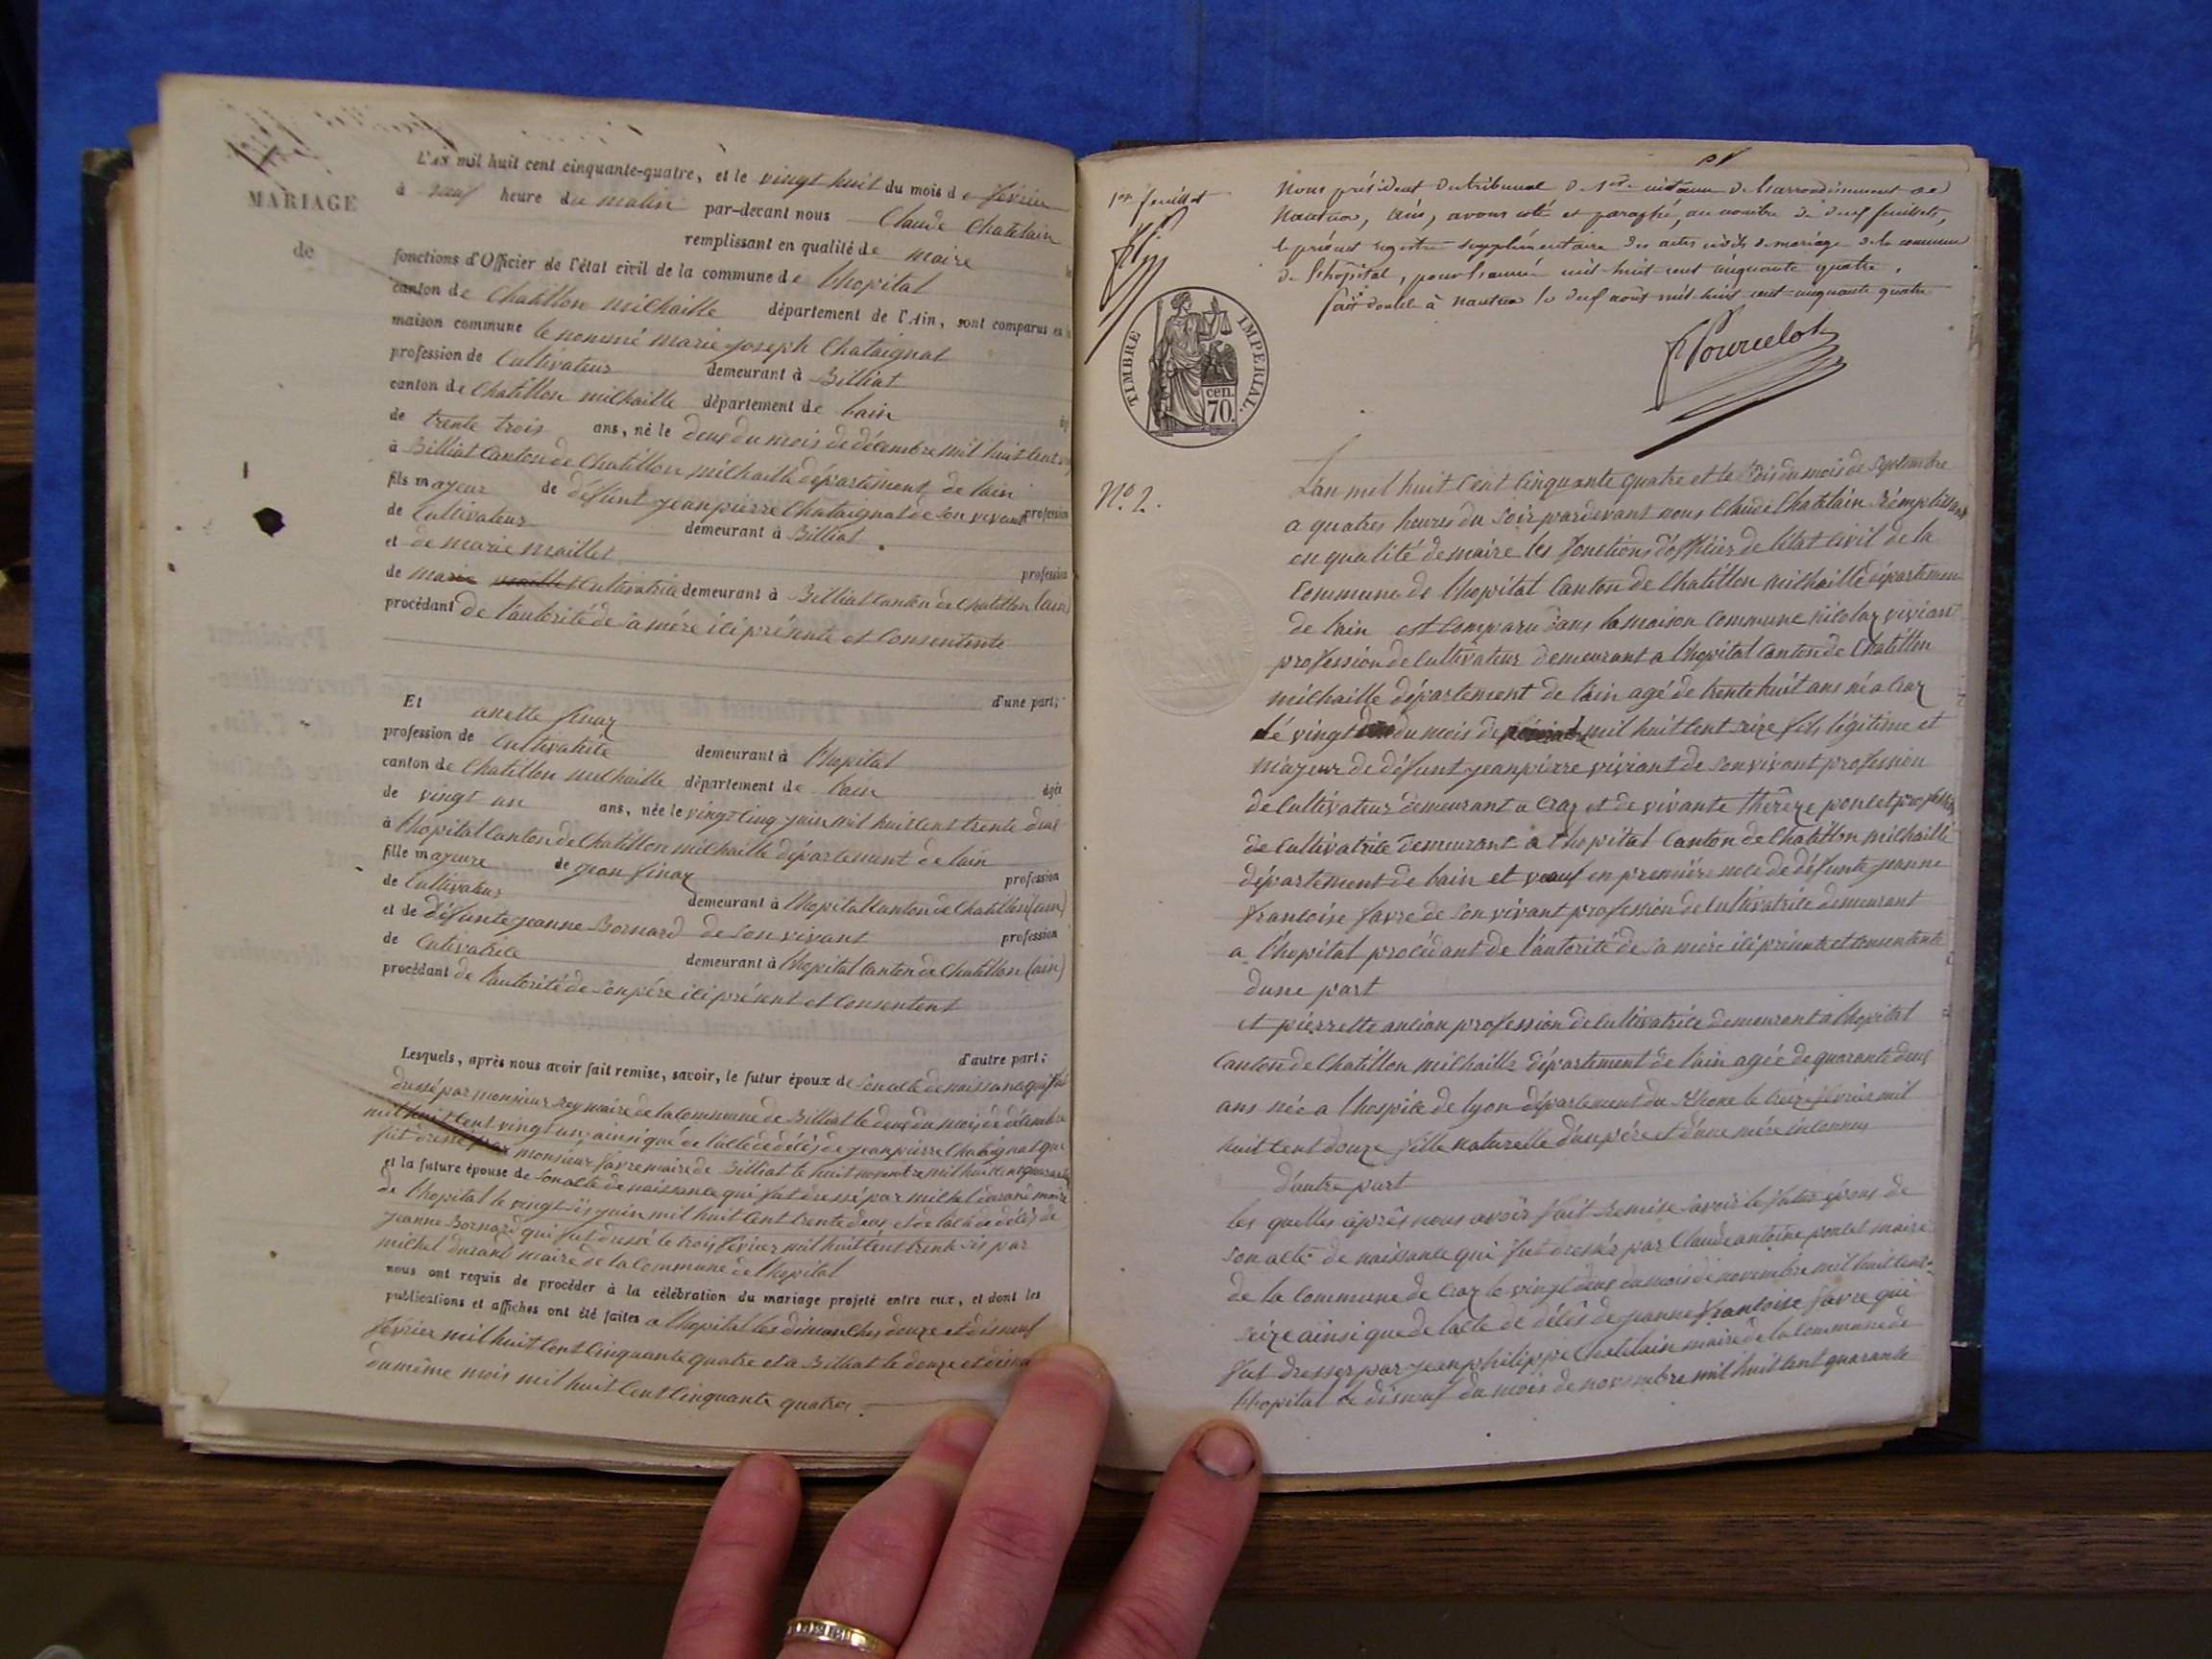 MARIAGE
de
L'AN mil huit cent cinquante-quatre, et le vingt huit du mois de février
à neuf heure du matin par-devant nous Claude Chatelain
remplissant en qualité de maire
fonctions d'Officier de l'état civil de la commune de lhopital
canton de Chatillon milhaille département de l'Ain, sont comparus en la
maison commune le nommé marie joseph Chataignat
profession de Cultivateur demeurant à Billiat
canton de Chatillon milhaille département de lain
de trente trois ans, né le deux du mois de décembre mil huit cent
à Billiat Canton de Chatillon milhaille département de lain
fils majeur de défunt jean pierre Chataignat de son vivant profession
de Cultivateur demeurant à Billiat
et de marie maillet profession
de marie Cultivatrice demeurant à Billiat Canton de Chatillon (ain)
procédant de l'autorité de sa mére ici présente et Consentente
d'une part;
Et anette finaz
profession de Cultivatrice demeurant à lhopital
canton de Chatillon milhaille département de lain âgée
de vingt un ans, née le vingt cinq juin mil huit cent trente deux
à lhopital Canton de Chatillon milhaille département de lain
fille majeure de jean finaz profession
de Cultivateur demeurant à lhopital Canton de Chatillon (ain)
et de défunte jeanne Bornard de son vivant profession
de Cutivatrice demeurant à lhopital Canton de Chatillon (ain)
procédant de l'autorité de son pére ici présent et Consentent
d'autre part;
Lesquels, après nous avoir fait remise, savoir, le futur époux de son acte de naissance qui fut
dressé par monsieur Rey maire de la Commune de Billiat le deux du mois de décembre
mil huit Cent vingt un ainsi que de l'acte de décés de jean pierre Chataignat que
fut dressé par monsieur favre maire de Billiat le huit novembre mil huit cent quarante
et la future épouse de son acte de naissance qui fut dressé par michel durand maire
de lhopital le vingt six juin mil huit Cent trente deux et de lacte de décés de
jeanne Bornard qui fut dressé le trois février mil huit Cent trente six par
michel durand maire de la Commune de lhopital
nous ont requis de procéder à la célébration du mariage projeté entre eux, et dont les
publications et affiches ont été faites a lhopital les dimanches douze et disneuf
février mil huit Cent Cinquante quatre et a Billiat le douze et
du même mois mil huit Cent Cinquante quatre
1er feuillet
Nous président du tribunal de 1ère instance de l'arrondissement de
Nantua, Ain, avons coté et paraphé, au nombre de deux feuillets,
le présent registre supplémentaire des actes civils de mariage de la commune
de l'hôpital, pour l'année mil-huit-cent cinquante quatre.
fait double à Nantua le neuf août mil-huit-cent-cinquante quatre
Pourcelot
TIMBRE IMPERIAL
70 cen.
N° 2.
Lan mil huit Cent Cinquante quatre et le trois du mois de Septembre
a quatres heures du Soir pardevant nous Claude Chatelain Remplissant
en qualité de maire les fonctions d'officier de letat Civil de la
Commune de lhopital Canton de Chatillon milhaille département
de lain est Comparu dans la maison Commune nicolas viviant
profession de Cultivateur demeurant a lhopital Canton de Chatillon
milhaille département de lain agé de trente huit ans né a Craz
lé vingt deux du mois de mil huit Cent seize fils légitime et
majeur de défunt jean pierre viviant de Son vivant profession
de Cultivateur demeurant a Craz et de vivante théreze poncet profession
de Cultivatrice demeurant a lhopital Canton de Chatillon milhaille
département de lain et veauf en premiére noce de défunte jeanne
francoise favre de Son vivant profession de Cultivatrice demeurant
a lhopital procédant de l'autorité de Sa mére ici présente et Consentente
dune part
et pierrette ancian profession de Cultivatrice demeurant a lhopital
Canton de Chatillon milhaille département de lain agée de quarante deux
ans née a lhospice de lyon département du Rhone le treize février mil
huit Cent douze fille naturelle d'un pére et d'une mére inconnus
d'autre part
les quelles aprés nous avoir fait Remise Savoir le futur époux de
Son acte de naissance qui fut dressér par Claude antoine poncet maire
de la Commune de Craz le vingt deux du mois de novembre mil huit Cent
seize ainsi que de lacte de décés de jeanne francoise favre qui
fut dresser par jean philippe Chatelain maire de la Commune de
lhopital le disneuf du mois de novembre mil huit Cent quarante